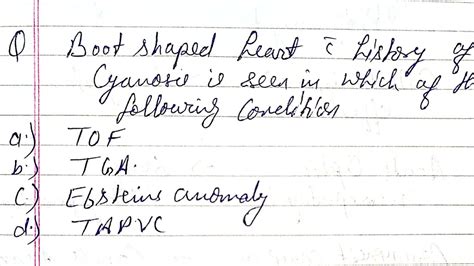 Q Boot shaped heart c̄ history of
Cyanosis is seen in which of the
following Condition
a.) TOF
b.) TGA.
c.) Ebsteins anomaly
d.) TAPVC